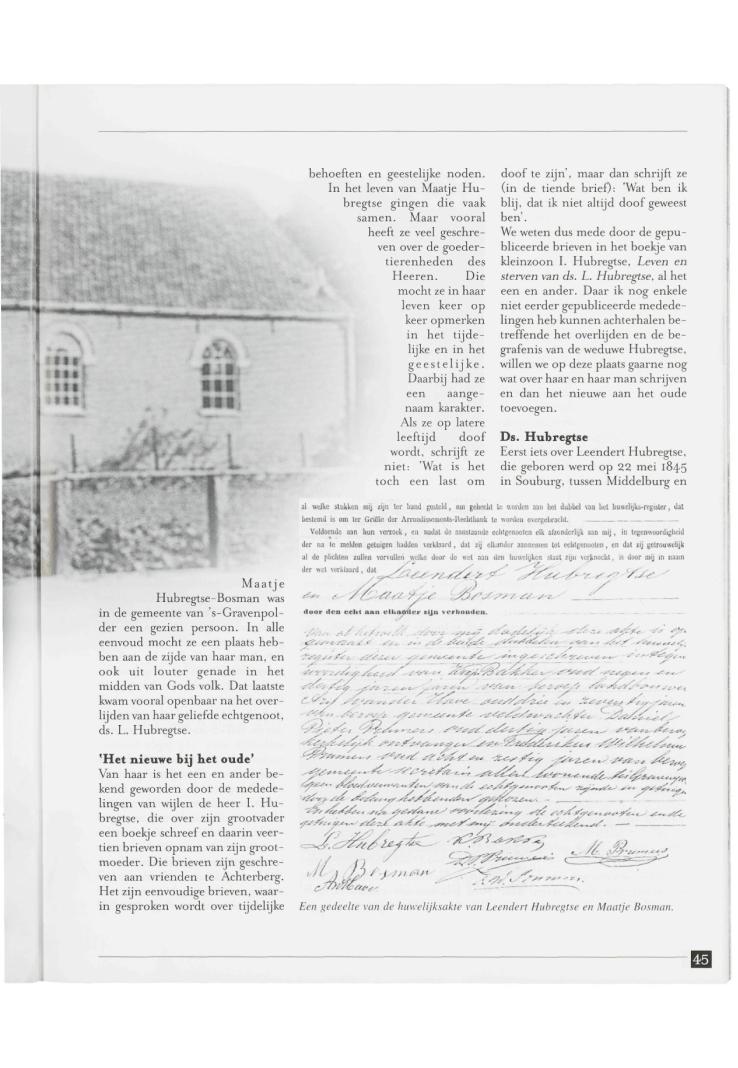 Maatje
Hubregtse-Bosman was
in de gemeente van 's-Gravenpol-
der een gezien persoon. In alle
eenvoud mocht ze een plaats heb-
ben aan de zijde van haar man, en
ook uit louter genade in het
midden van Gods volk. Dat laatste
kwam vooral openbaar na het over-
lijden van haar geliefde echtgenoot,
ds. L. Hubregtse.
'Het nieuwe bij het oude'
Van haar is het een en ander be-
kend geworden door de medede-
lingen van wijlen de heer I. Hu-
bregtse, die over zijn grootvader
een boekje schreef en daarin veer-
tien brieven opnam van zijn groot-
moeder. Die brieven zijn geschre-
ven aan vrienden te Achterberg.
Het zijn eenvoudige brieven, waar-
in gesproken wordt over tijdelijke
behoeften en geestelijke noden.
In het leven van Maatje Hu-
bregtse gingen die vaak
samen. Maar vooral
heeft ze veel geschre-
ven over de goeder-
tierenheden des
Heeren. Die
mocht ze in haar
leven keer op
keer opmerken
in het tijde-
lijke en in het
geestelijke.
Daarbij had ze
een aange-
naam karakter.
Als ze op latere
leeftijd doof
wordt, schrijft ze
niet: 'Wat is het
toch een last om
doof te zijn', maar dan schrijft ze
(in de tiende brief): 'Wat ben ik
blij, dat ik niet altijd doof geweest
ben'.
We weten dus mede door de gepu-
bliceerde brieven in het boekje van
kleinzoon I. Hubregtse, Leven en
sterven van ds. L. Hubregtse, al het
een en ander. Daar ik nog enkele
niet eerder gepubliceerde medede-
lingen heb kunnen achterhalen be-
treffende het overlijden en de be-
grafenis van de weduwe Hubregtse,
willen we op deze plaats gaarne nog
wat over haar en haar man schrijven
en dan het nieuwe aan het oude
toevoegen.
Ds. Hubregtse
Eerst iets over Leendert Hubregtse,
die geboren werd op 22 mei 1845
in Souburg, tussen Middelburg en
al welke stukken mij zijn ter hand gesteld, om gehecht te worden aan het dubbel van het huwelijks-register, dat
bestemd is om ter Griffie der Arrondissements-Rechtbank te worden overgebracht.
Voldoende aan hun verzoek, en nadat de aanstaande echtgenooten elk afzonderlijk aan mij, in tegenwoordigheid
der na te melden getuigen hadden verklaard, dat zij elkander aannemen tot echtgenooten, en dat zij getrouwelijk
al de plichten zullen vervullen welke door de wet aan den huwelijken staat zijn verknocht, is door mij in naam
der wet verklaard, dat Leendert Hubregtse
en Maatje Bosman
door den echt aan elkander zijn verbonden.
Van al hetwelk door mij dadelijk deze akte is op
gemaakt en in de beide dubbelen van het huwelijks
register dezer gemeente ingeschreven in tegen
woordigheid van Bakker oud negen en
dertig jaren van beroep landbouwer
van der Have oud drie en zeventig jaren
van beroep gemeente veldwachter Daniel
Pieter oud dertig jaren van beroep
kerkelijk ontvanger en Frederikus Wilhelmus
oud acht en zestig jaren van beroep
gemeente secretaris allen wonende te
geen bloedverwanten van de echtgenooten zijnde en getuigen
door de belang hebbenden gekozen.
En hebben na gedane voorlezing de echtgenooten ende
getuigen deze akte met mij onderteekend.
L. Hubregtse
M Bosman
Een gedeelte van de huwelijksakte van Leendert Hubregtse en Maatje Bosman.
45